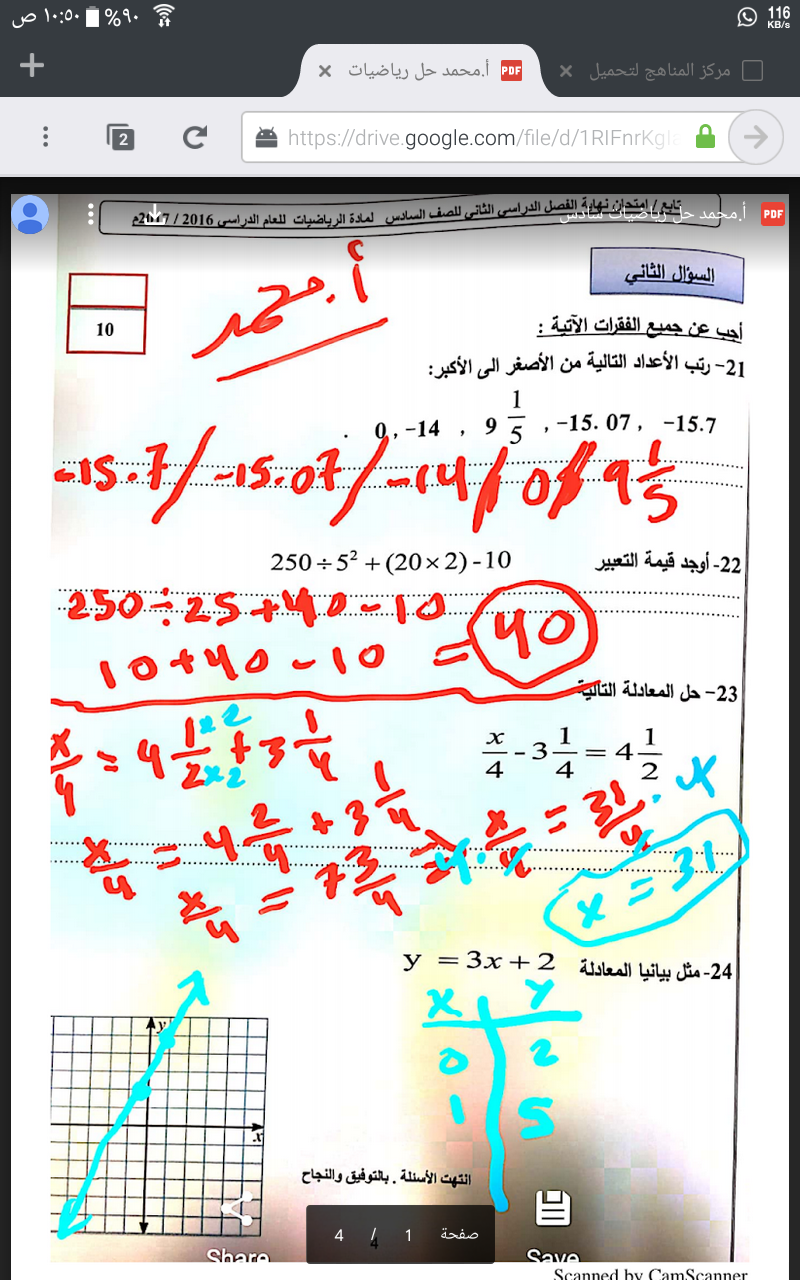 ١٠:٥٠ ص %٩٠ 116 KB/s
أ.محمد حل رياضيات PDF
مركز المناهج لتحميل
2 https://drive.google.com/file/d/1RIFnrKgIa
أ.محمد حل رياضيات سادس PDF
تابع / امتحان نهاية الفصل الدراسي الثاني للصف السادس لمادة الرياضيات للعام الدراسي 2016 / 2017م
السؤال الثاني
أ.محمد
10
أجب عن جميع الفقرات الآتية :
21- رتب الأعداد التالية من الأصغر الى الأكبر:
0 , -14 , 9 1/5 , -15.07 , -15.7
-15.7 / -15.07 / -14 / 0 / 9 1/5
22- أوجد قيمة التعبير 250 ÷ 5² + (20 × 2) - 10
250 ÷ 25 + 40 - 10
10 + 40 - 10 = 40
23- حل المعادلة التالية
x/4 - 3 1/4 = 4 1/2
x/4 = 4 1×2/2×2 + 3 1/4
x/4 = 4 2/4 + 3 1/4
x/4 = 7 3/4 => 4 · x/4 = 31/4 · 4
x = 31
24- مثل بيانيا المعادلة y = 3x + 2
x y
0 2
1 5
y
x
انتهت الأسئلة . بالتوفيق والنجاح
صفحة 1 / 4
4
Share Save
Scanned by CamScanner